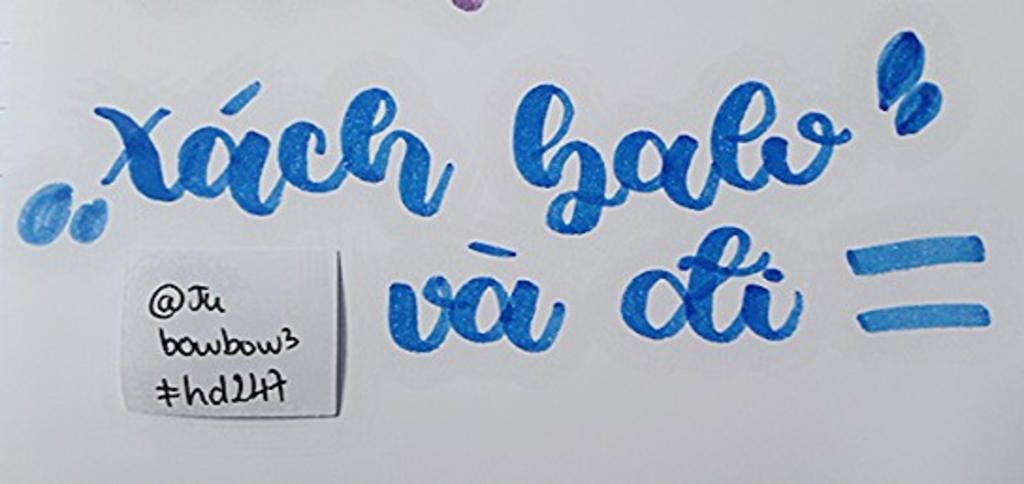 "xách balo"
và đi =
@Ju
bowbow3
#hd247